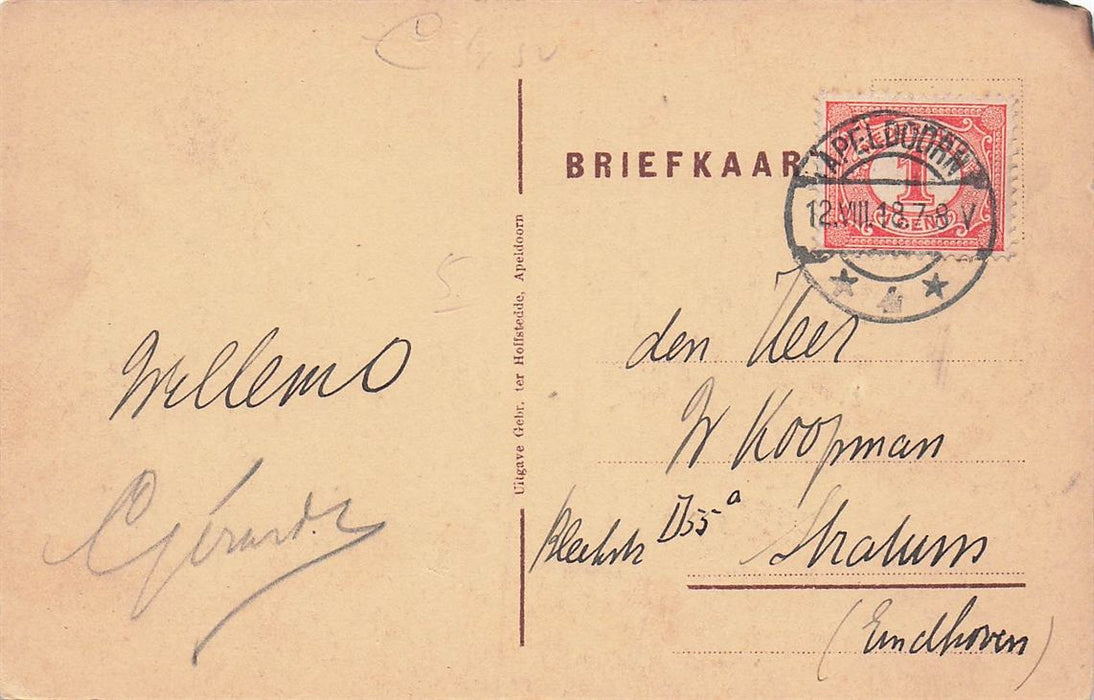 BRIEFKAAR
APELDOORN
1
CENT
12.VIII.18.7-8 V
4
Uitgave Gebr. ter Hoffstedde, Apeldoorn
5
Willems
C Gérards
den Heer
W Koopman
D55a
Stratum
(Eindhoven)